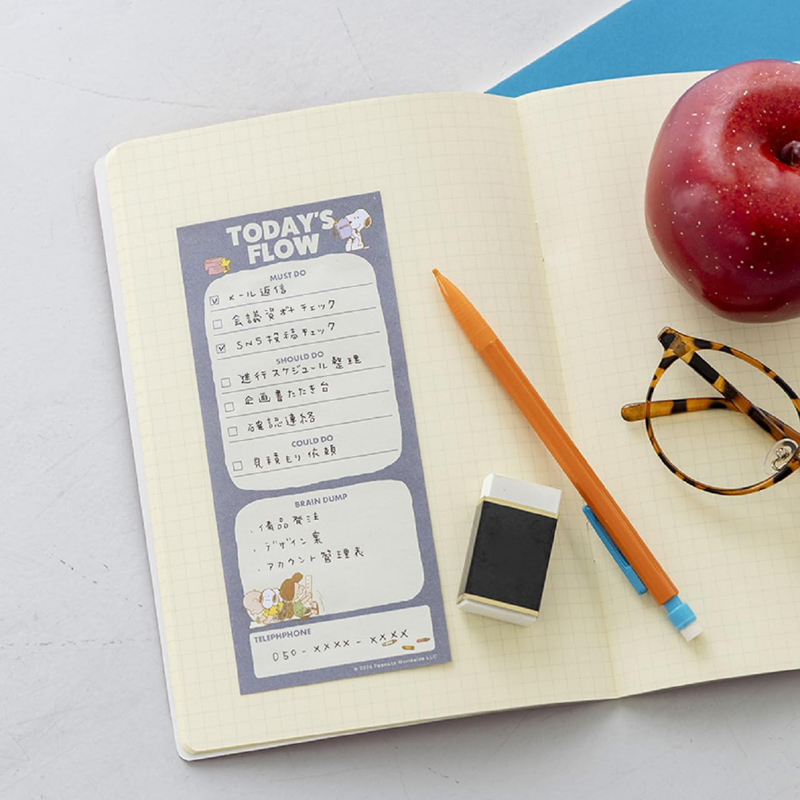 TODAY'S
FLOW
MUST DO
メール返信
会議資料チェック
SNS投稿チェック
SHOULD DO
進行スケジュール整理
企画書たたき台
確認連絡
COULD DO
見積もり依頼
BRAIN DUMP
・備品発注
・デザイン案
・アカウント管理表
TELEPHPHONE
050-××××-××××
© 2026 Peanuts Worldwide LLC